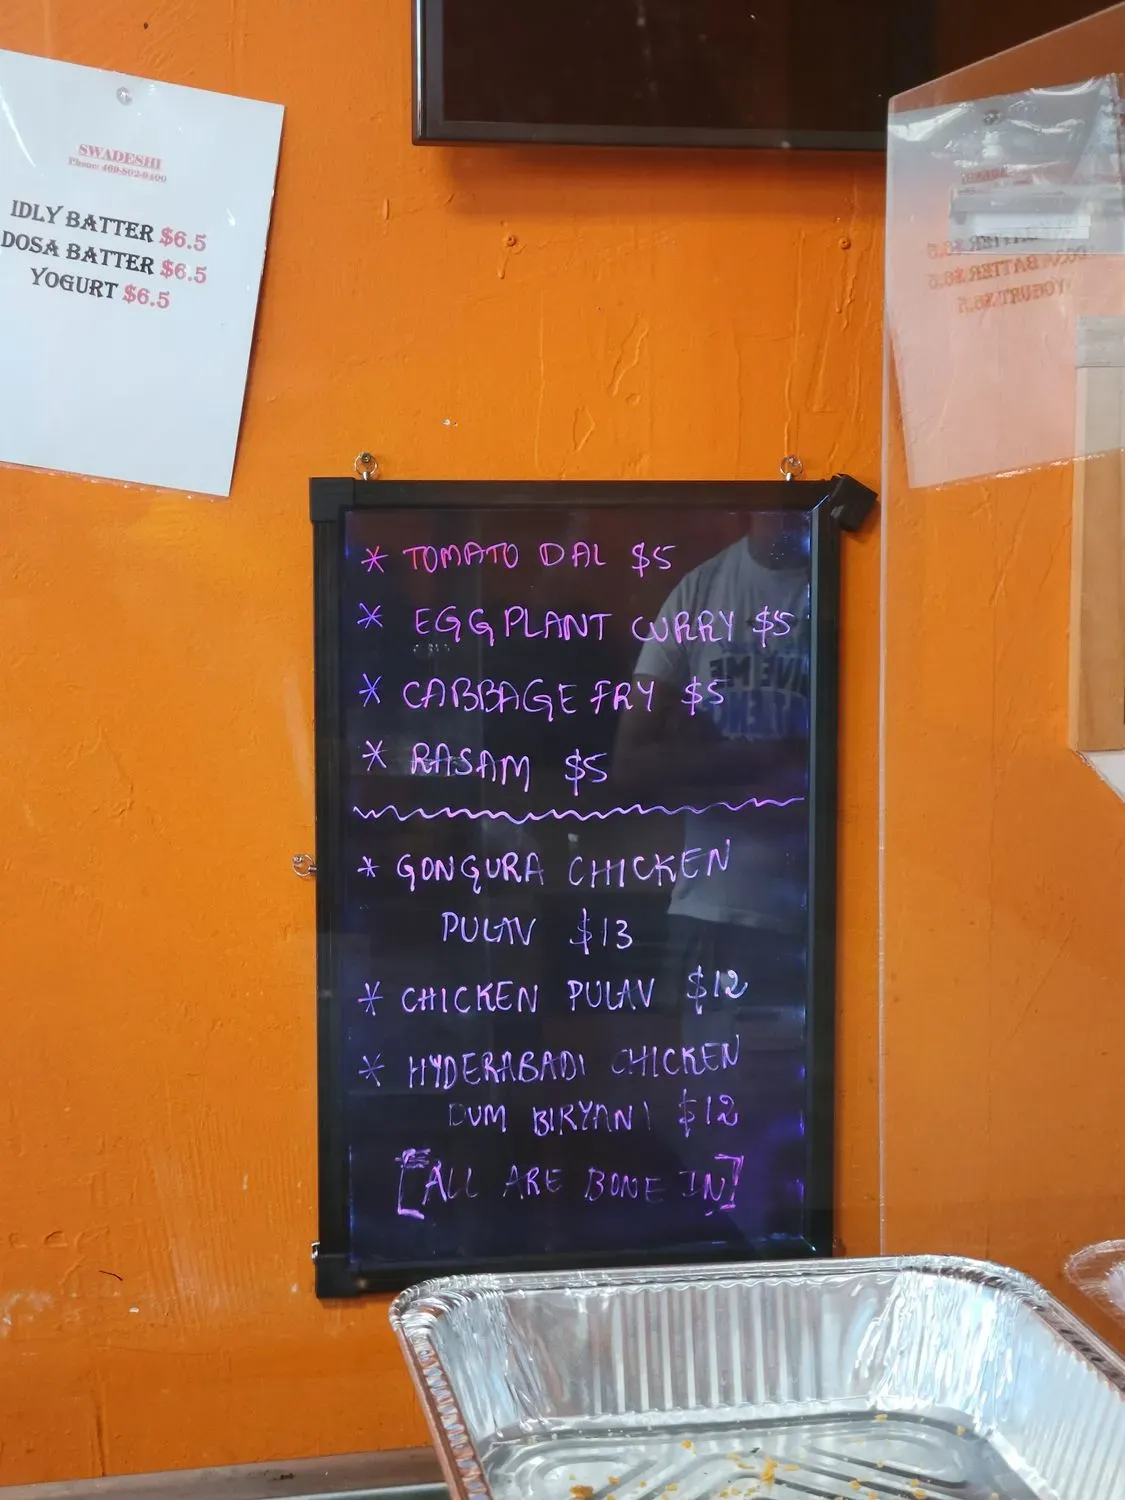 SWADESHI
Phone: 469-802-9400
IDLY BATTER $6.5
DOSA BATTER $6.5
YOGURT $6.5
* TOMATO DAL $5
* EGGPLANT CURRY $5
* CABBAGE FRY $5
* RASAM $5
* GONGURA CHICKEN
PULAV $13
* CHICKEN PULAV $12
* HYDERABADI CHICKEN
DUM BIRYANI $12
[ALL ARE BONE IN]